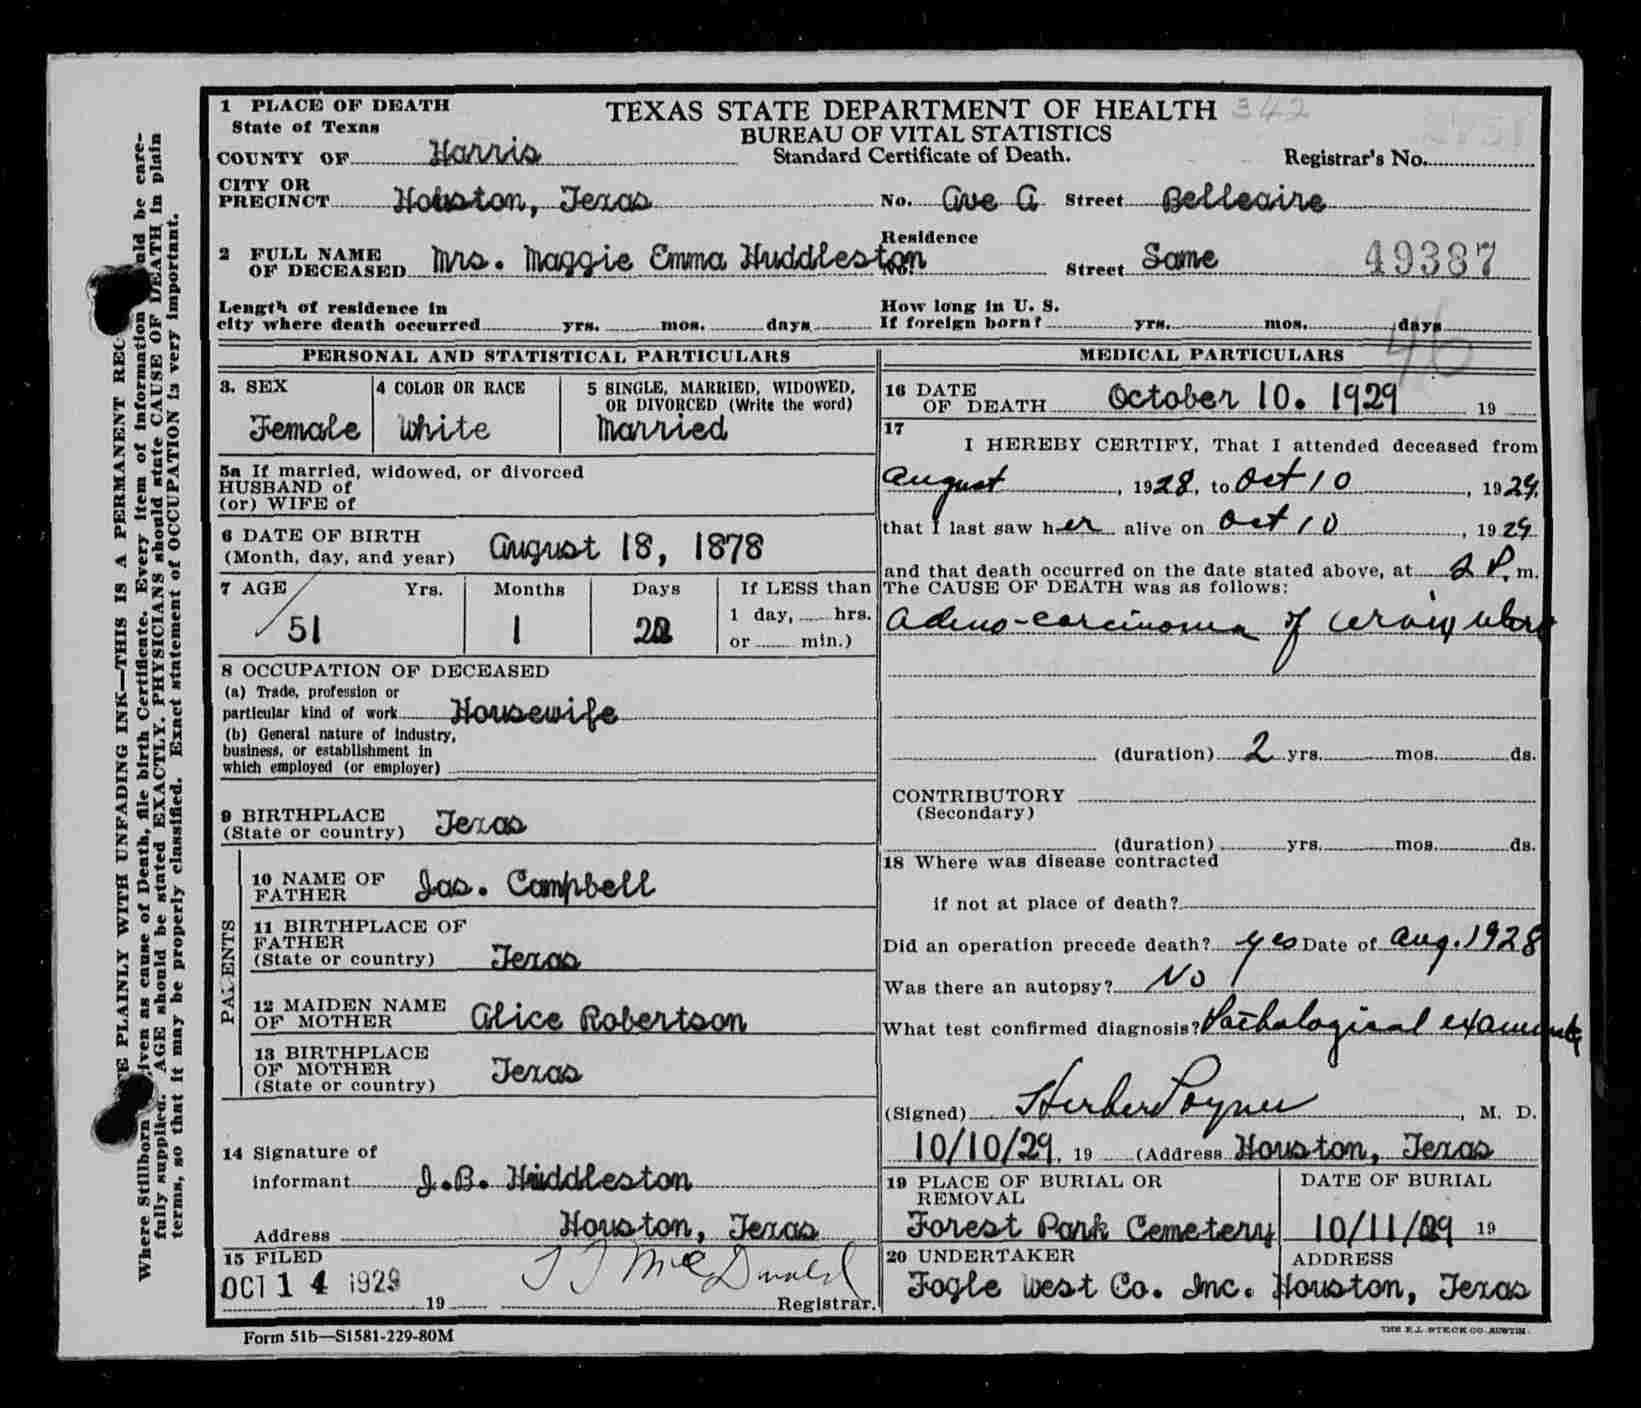 1 PLACE OF DEATH
State of Texas
TEXAS STATE DEPARTMENT OF HEALTH 342
BUREAU OF VITAL STATISTICS
COUNTY OF Harris
Standard Certificate of Death.
Registrar's No.
CITY OR PRECINCT Houston, Texas No. Ave A Street Belleaire
2 FULL NAME OF DECEASED Mrs. Maggie Emma Huddleston
Residence No. Street Same 49387
Length of residence in
city where death occurred yrs. mos. days
How long in U. S.
If foreign born? yrs. mos. days
46
PERSONAL AND STATISTICAL PARTICULARS
3. SEX
Female
4 COLOR OR RACE
White
5 SINGLE, MARRIED, WIDOWED,
OR DIVORCED (Write the word)
Married
5a If married, widowed, or divorced
HUSBAND of
(or) WIFE of
6 DATE OF BIRTH
(Month, day, and year) August 18, 1878
7 AGE Yrs. Months Days If LESS than
1 day, hrs.
or min.)
51 1 22
8 OCCUPATION OF DECEASED
(a) Trade, profession or
particular kind of work Housewife
(b) General nature of industry,
business, or establishment in
which employed (or employer)
9 BIRTHPLACE
(State or country) Texas
PARENTS
10 NAME OF
FATHER Jas. Campbell
11 BIRTHPLACE OF
FATHER
(State or country) Texas
12 MAIDEN NAME
OF MOTHER Alice Robertson
13 BIRTHPLACE
OF MOTHER
(State or country) Texas
14 Signature of
informant J.B. Huddleston
Address Houston, Texas
15 FILED
OCT 14 1929
19 Registrar.
McDonald
MEDICAL PARTICULARS
16 DATE
OF DEATH October 10. 1929 19
17
I HEREBY CERTIFY, That I attended deceased from
August, 1928, to Oct 10, 1929,
that I last saw her alive on Oct 10, 1929
and that death occurred on the date stated above, at 2 P. m.
The CAUSE OF DEATH was as follows:
Adeno-carcinoma of
(duration) 2 yrs. mos. ds.
CONTRIBUTORY
(Secondary)
(duration) yrs. mos. ds.
18 Where was disease contracted
if not at place of death?
Did an operation precede death? yes Date of Aug. 1928
Was there an autopsy? No
What test confirmed diagnosis? Pathological
(Signed) Poyner, M. D.
10/10/29, 19 (Address Houston, Texas
19 PLACE OF BURIAL OR
REMOVAL
Forest Park Cemetery
DATE OF BURIAL
10/11/29 19
20 UNDERTAKER
Fogle West Co. Inc.
ADDRESS
Houston, Texas
Form 51b—S1581-229-80M
THE E.L. STECK CO. AUSTIN.
TE PLAINLY WITH UNFADING INK—THIS IS A PERMANENT REC
Where Stillborn given as cause of Death, file birth Certificate. Every item of information should be care-
fully supplied. AGE should be stated EXACTLY. PHYSICIANS should state CAUSE OF DEATH in plain
terms, so that it may be properly classified. Exact statement of OCCUPATION is very important.